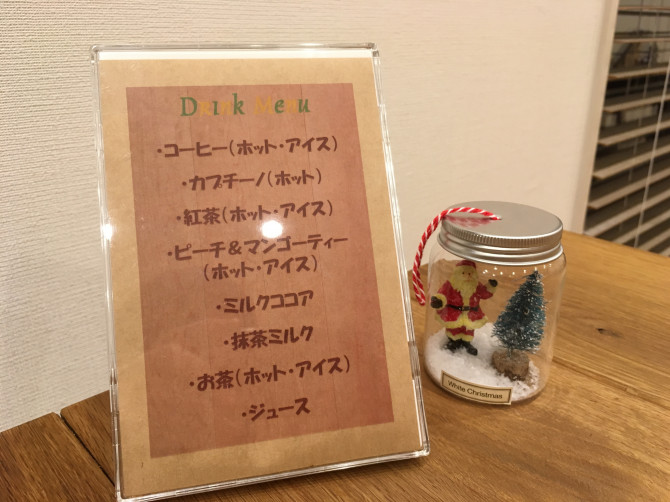 Drink Menu
・コーヒー(ホット・アイス)
・カプチーノ(ホット)
・紅茶(ホット・アイス)
・ピーチ&マンゴーティー
(ホット・アイス)
・ミルクココア
・抹茶ミルク
・お茶(ホット・アイス)
・ジュース
White Christmas